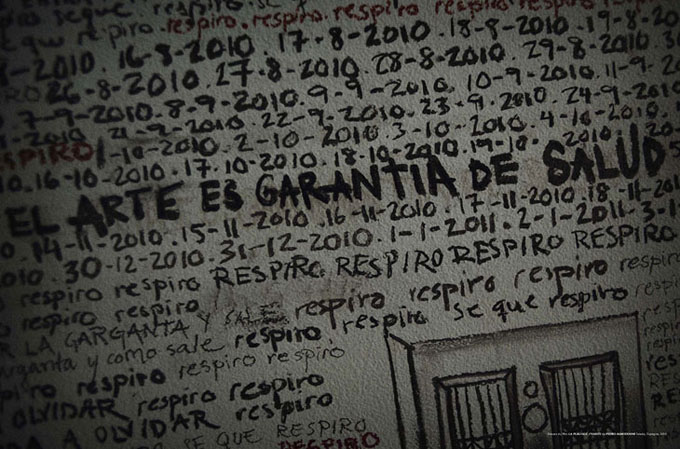 que respiro. respiro. se a
e qu respiro. respiro. respiro. respiro respiro respiro respiro
8-2010. 16-8-2010. 17-8-2010. 18-8-2010. 19-8-20
RO 26-8-2010. 27-8-2010. 28-8-2010. 29-8-2010.
7-9-2010. 8-9-2010. 9-9-2010. 10-9-2010. 11-9-2
21-9-2010. 22-9-2010. 23-9-2010. 24-9-2010
ESPIRO 1-10-2010. 2-10-2010. 3-10-2010. 4-10-2010.
10. 16-10-2010. 17-10-2010. 18-10-2010. 19-10-2010.
EL ARTE ES GARANTIA DE SALUD
0. 14-11-2010. 15-11-2010. 16-11-2010. 17-11-2010. 18-11-201
010. 30-12-2010. 31-12-2010. 1-1-2011. 2-1-2011. 3-1
respiro respiro RESPIRO RESPIRO RESPIRO RESPIRO RESPIRO
respiro respiro respiro respiro respiro respiro respiro
R LA GARGANTA Y SALE respiro. respiro se que respiro
garganta y como sale respiro.
piro respiro respiro respiro respiro
OLVIDAR respiro respiro
A OLVIDAR respiro
SE QUE RESPIRO
RESPIRO